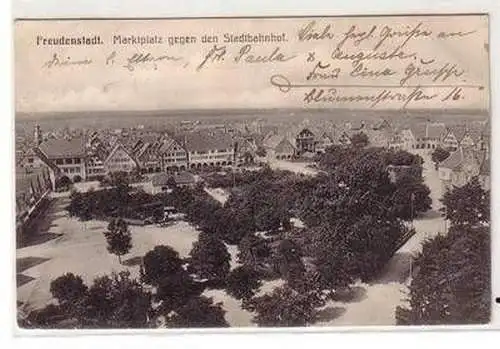 Freudenstadt. Marktplatz gegen den Stadtbahnhof.
Viele herzl. Grüsse an
deine l. Eltern, Frl. Paula & Auguste.
Frau Lina
Blumenstraße 16.